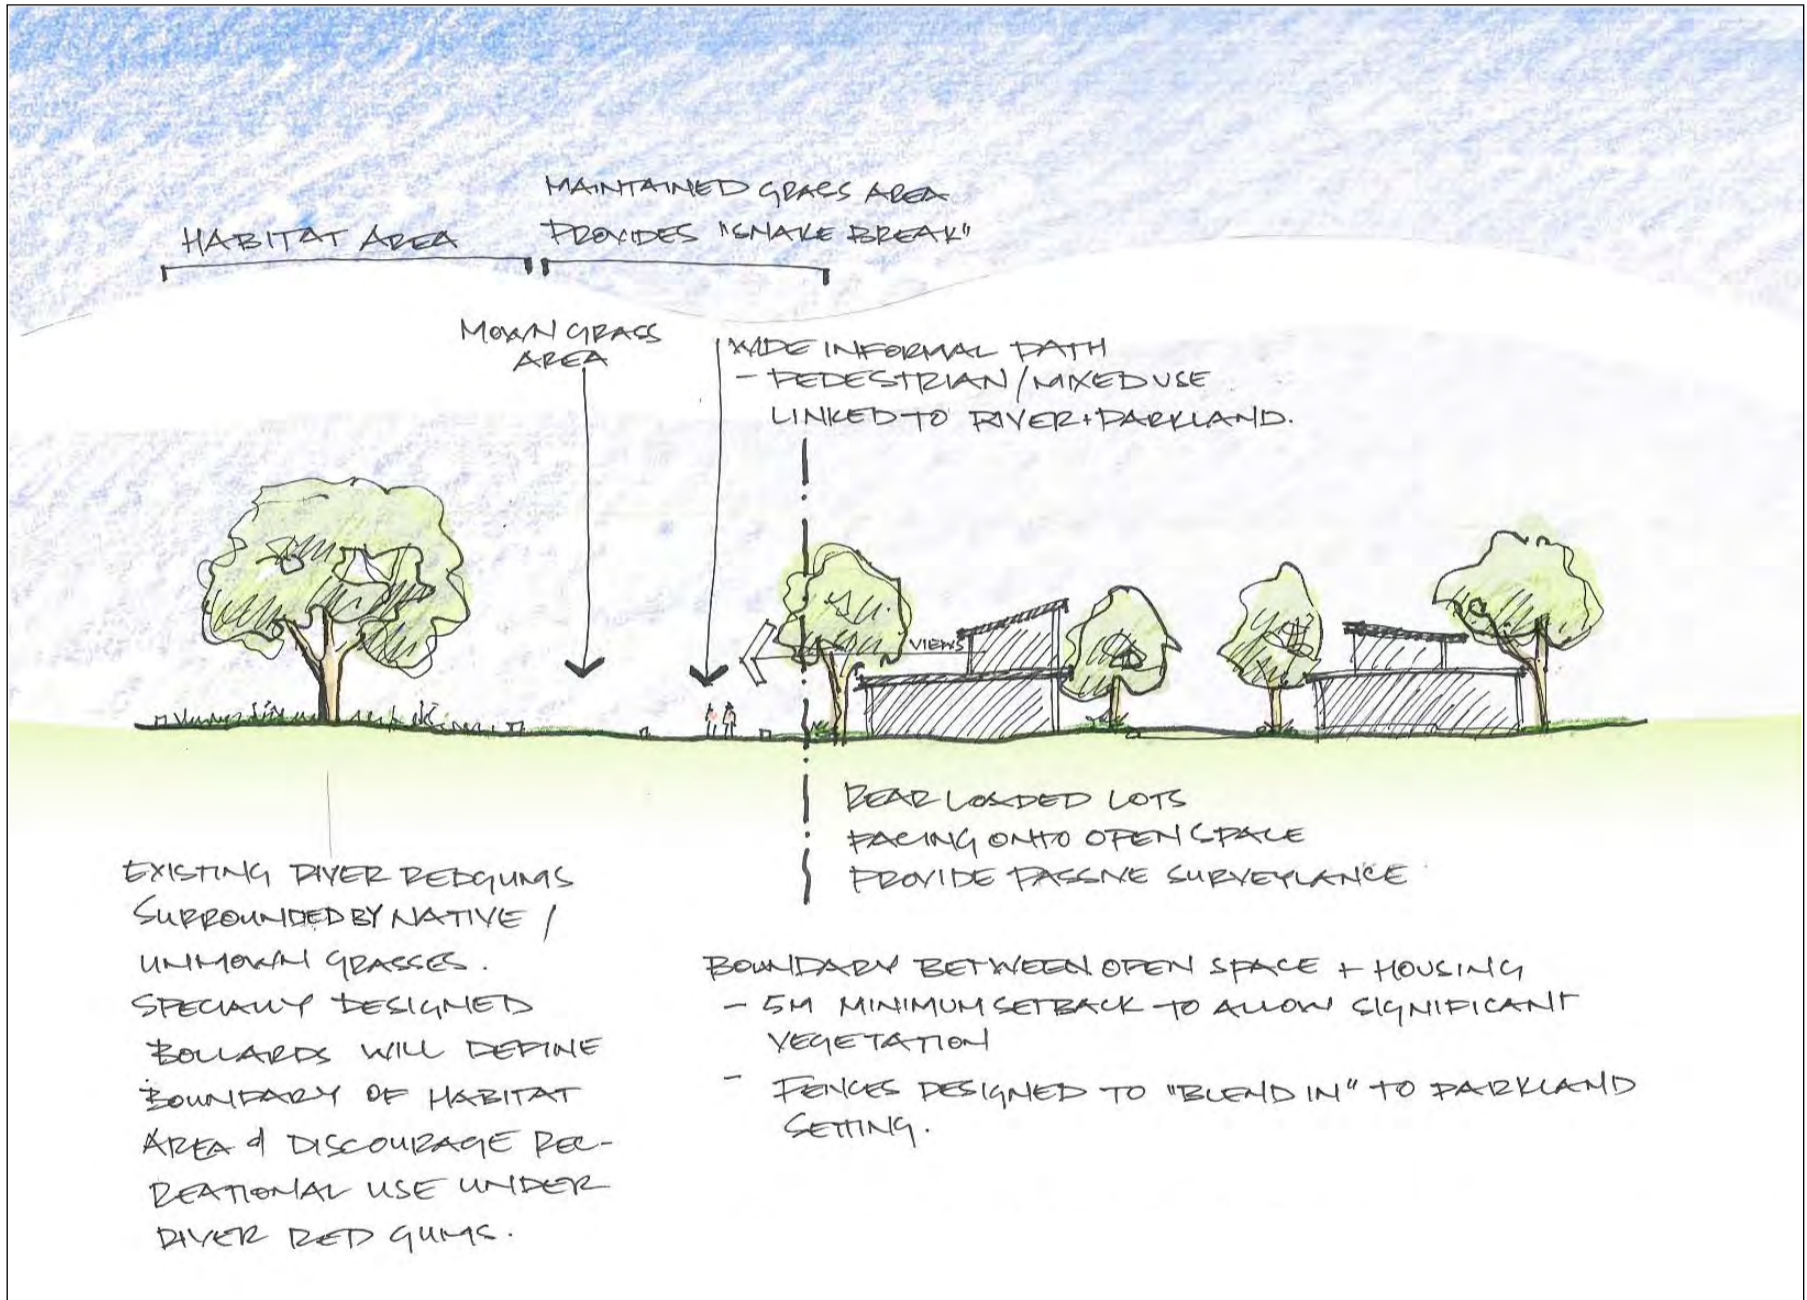 HABITAT AREA
MAINTAINED GRASS AREA
PROVIDES "SNAKE BREAK"
MOWN GRASS
AREA
WIDE INFORMAL PATH
- PEDESTRIAN/MIXED USE
LINKED TO RIVER + PARKLAND.
VIEWS
REAR LOADED LOTS
FACING ONTO OPEN SPACE
PROVIDE PASSIVE SURVEYLANCE
EXISTING RIVER REDGUMS
SURROUNDED BY NATIVE /
UNMOWN GRASSES.
SPECIALLY DESIGNED
BOLLARDS WILL DEFINE
BOUNDARY OF HABITAT
AREA & DISCOURAGE REC-
REATIONAL USE UNDER
RIVER RED GUMS.
BOUNDARY BETWEEN OPEN SPACE + HOUSING
- 5M MINIMUM SETBACK TO ALLOW SIGNIFICANT
VEGETATION
- FENCES DESIGNED TO "BLEND IN" TO PARKLAND
SETTING.